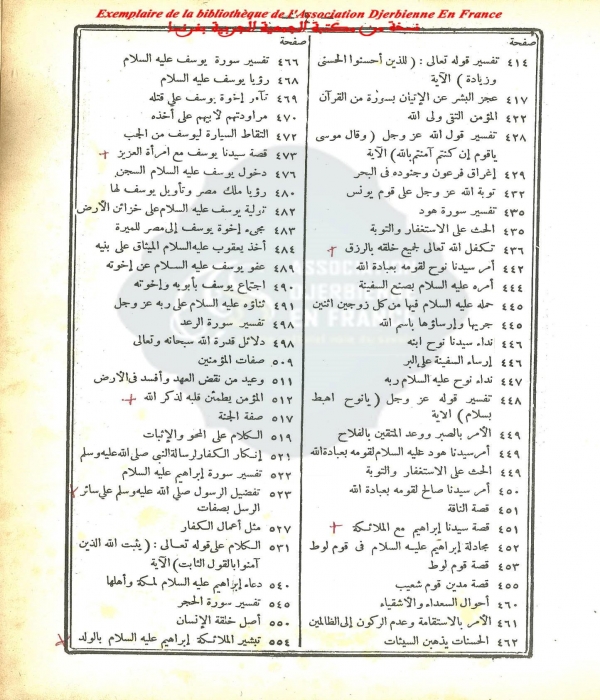 Exemplaire de la bibliothèque de l'Association Djerbienne En France
نسخة من مكتبة الجمعية الجربية بفرنسا
صفحة
٤١٤ تفسير قوله تعالى : ( للذين أحسنوا الحسنى
وزيادة ) الآية
٤١٧ عجز البشر عن الإتيان بسورة من القرآن
٤٢٢ المؤمن التقى ولى الله
٤٢٨ تفسير قول الله عز وجل ( وقال موسى
ياقوم إن كنتم آمنتم بالله) الآية
٤٢٩ إغراق فرعون وجنوده فى البحر
٤٣٢ توبة الله عز وجل على قوم يونس
٤٣٥ تفسير سورة هود
٤٣٥ الحث على الاستغفار والتوبة
٤٣٦ تكفل الله تعالى لجميع خلقه بالرزق
٤٤٢ أمر سيدنا نوح لقومه بعبادة الله
٤٤٤ أمره عليه السلام بصنع السفينة
٤٤٥ حمله عليه السلام فيها من كل زوجين اثنين
٤٤٥ جريها وإرساؤها باسم الله
٤٤٦ نداء سيدنا نوح ابنه
٤٤٦ إرساء السفينة على البر
٤٤٧ نداء نوح عليه السلام ربه
٤٤٨ تفسير قوله عز وجل ( يانوح اهبط
بسلام ) الآية
٤٤٩ الأمر بالصبر ووعد المتقين بالفلاح
٤٤٩ أمر سيدنا هود عليه السلام لقومه بعبادة الله
٤٤٩ الحث على الاستغفار والتوبة
٤٥٠ أمر سيدنا صالح لقومه بعبادة الله
٤٥١ قصة الناقة
٤٥١ قصة سيدنا إبراهيم مع الملائكة
٤٥٢ مجادلة إبراهيم عليه السلام فى قوم لوط
٤٥٣ قصة قوم لوط
٤٥٥ قصة مدين قوم شعيب
٤٦٠ أحوال السعداء والأشقياء
٤٦١ الأمر بالاستقامة وعدم الركون إلى الظالمين
٤٦٢ الحسنات يذهبن السيئات
صفحة
٤٦٦ تفسير سورة يوسف عليه السلام
٤٦٨ رؤيا يوسف عليه السلام
٤٦٩ تآمر إخوة يوسف على قتله
٤٧٠ مراودتهم لأبيهم على أخذه
٤٧٢ التقاط السيارة ليوسف من الجب
٤٧٣ قصة سيدنا يوسف مع امرأة العزيز
٤٧٦ دخول يوسف عليه السلام السجن
٤٨٠ رؤيا ملك مصر وتأويل يوسف لها
٤٨٢ تولية يوسف عليه السلام على خزائن الأرض
٤٨٣ مجىء إخوة يوسف إلى مصر للميرة
٤٨٤ أخذ يعقوب عليه السلام الميثاق على بنيه
٤٨٩ عفو يوسف عليه السلام عن إخوته
٤٩٠ اجتماع يوسف بأبويه وإخوته
٤٩١ ثناؤه عليه السلام على ربه عز وجل
٤٩٨ تفسير سورة الرعد
٤٩٨ دلائل قدرة الله سبحانه وتعالى
٥٠٩ صفات المؤمنين
٥١١ وعيد من نقض العهد وأفسد فى الأرض
٥١٢ المؤمن يطمئن قلبه لذكر الله
٥١٧ صفة الجنة
٥١٩ الكلام على المحو والإثبات
٥٢١ إنكار الكفار لرسالة النبى صلى الله عليه وسلم
٥٢٢ تفسير سورة إبراهيم عليه السلام
٥٢٣ تفضيل الرسول صلى الله عليه وسلم على سائر
الرسل بصفات
٥٢٧ مثل أعمال الكفار
٥٣١ الكلام على قوله تعالى : ( يثبت الله الذين
آمنوا بالقول الثابت) الآية
٥٤٠ دعاء إبراهيم عليه السلام لمكة وأهلها
٥٤٥ تفسير سورة الحجر
٥٥٠ أصل خلقة الإنسان
٥٥٤ تبشير الملائكة إبراهيم عليه السلام بالولد
ASSOCIATION
DJERBIENNE
EN FRANCE